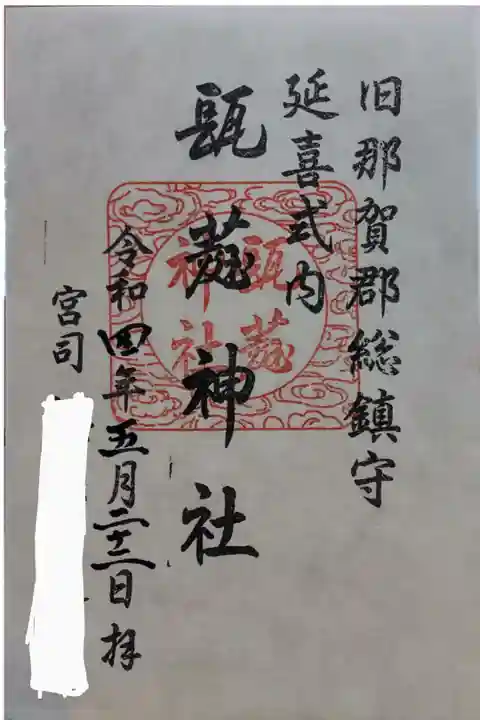 旧那賀郡総鎮守
延喜式内
瓺蕤神社
令和四年五月二十二日拝
宮司
瓺蕤
神社